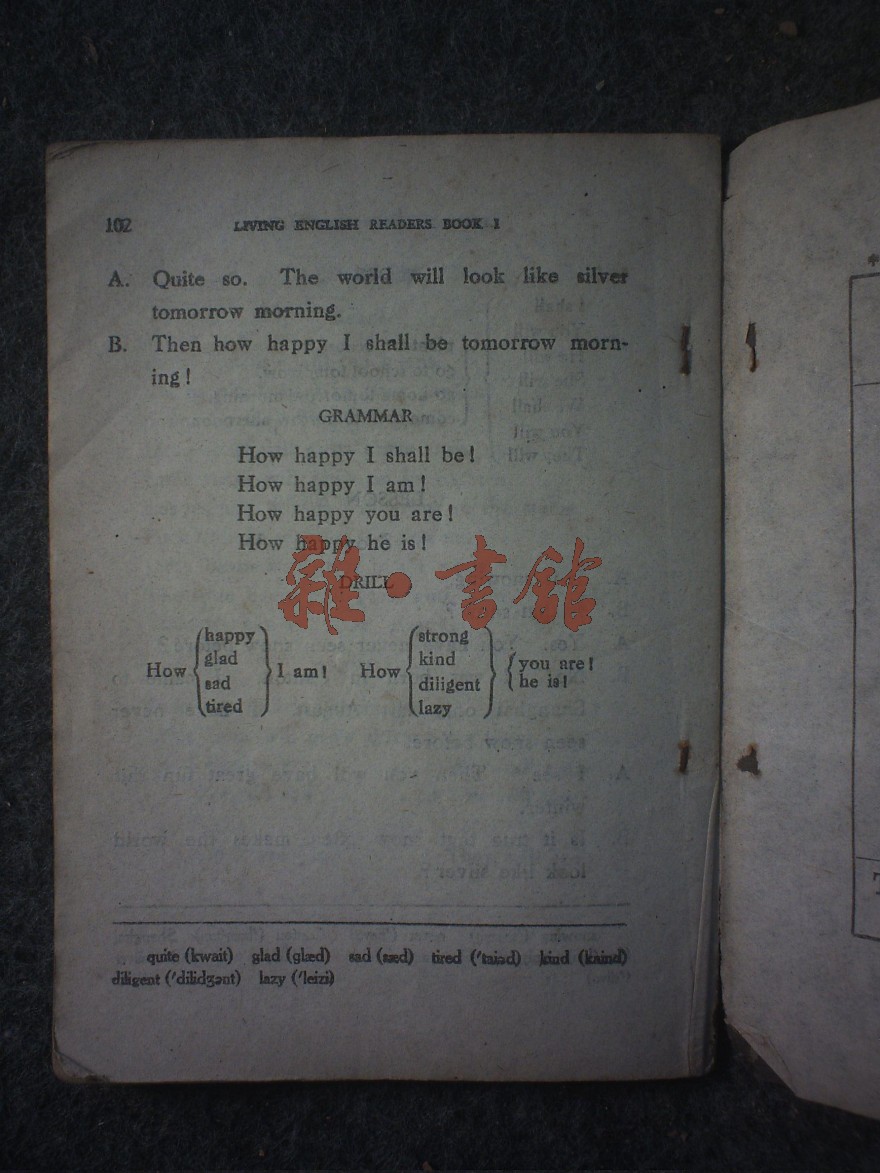 102 LIVING ENGLISH READERS BOOK I
A. Quite so. The world will look like silver
tomorrow morning.
B. Then how happy I shall be tomorrow morn-
ing!
GRAMMAR
How happy I shall be!
How happy I am!
How happy you are!
How happy he is!
雜·書館
DRILL
How {happy glad sad tired} I am! How {strong kind diligent lazy} {you are! he is!
quite (kwait) glad (glæd) sad (sæd) tired ('taiəd) kind (kaind)
diligent ('dilidʒənt) lazy ('leizi)